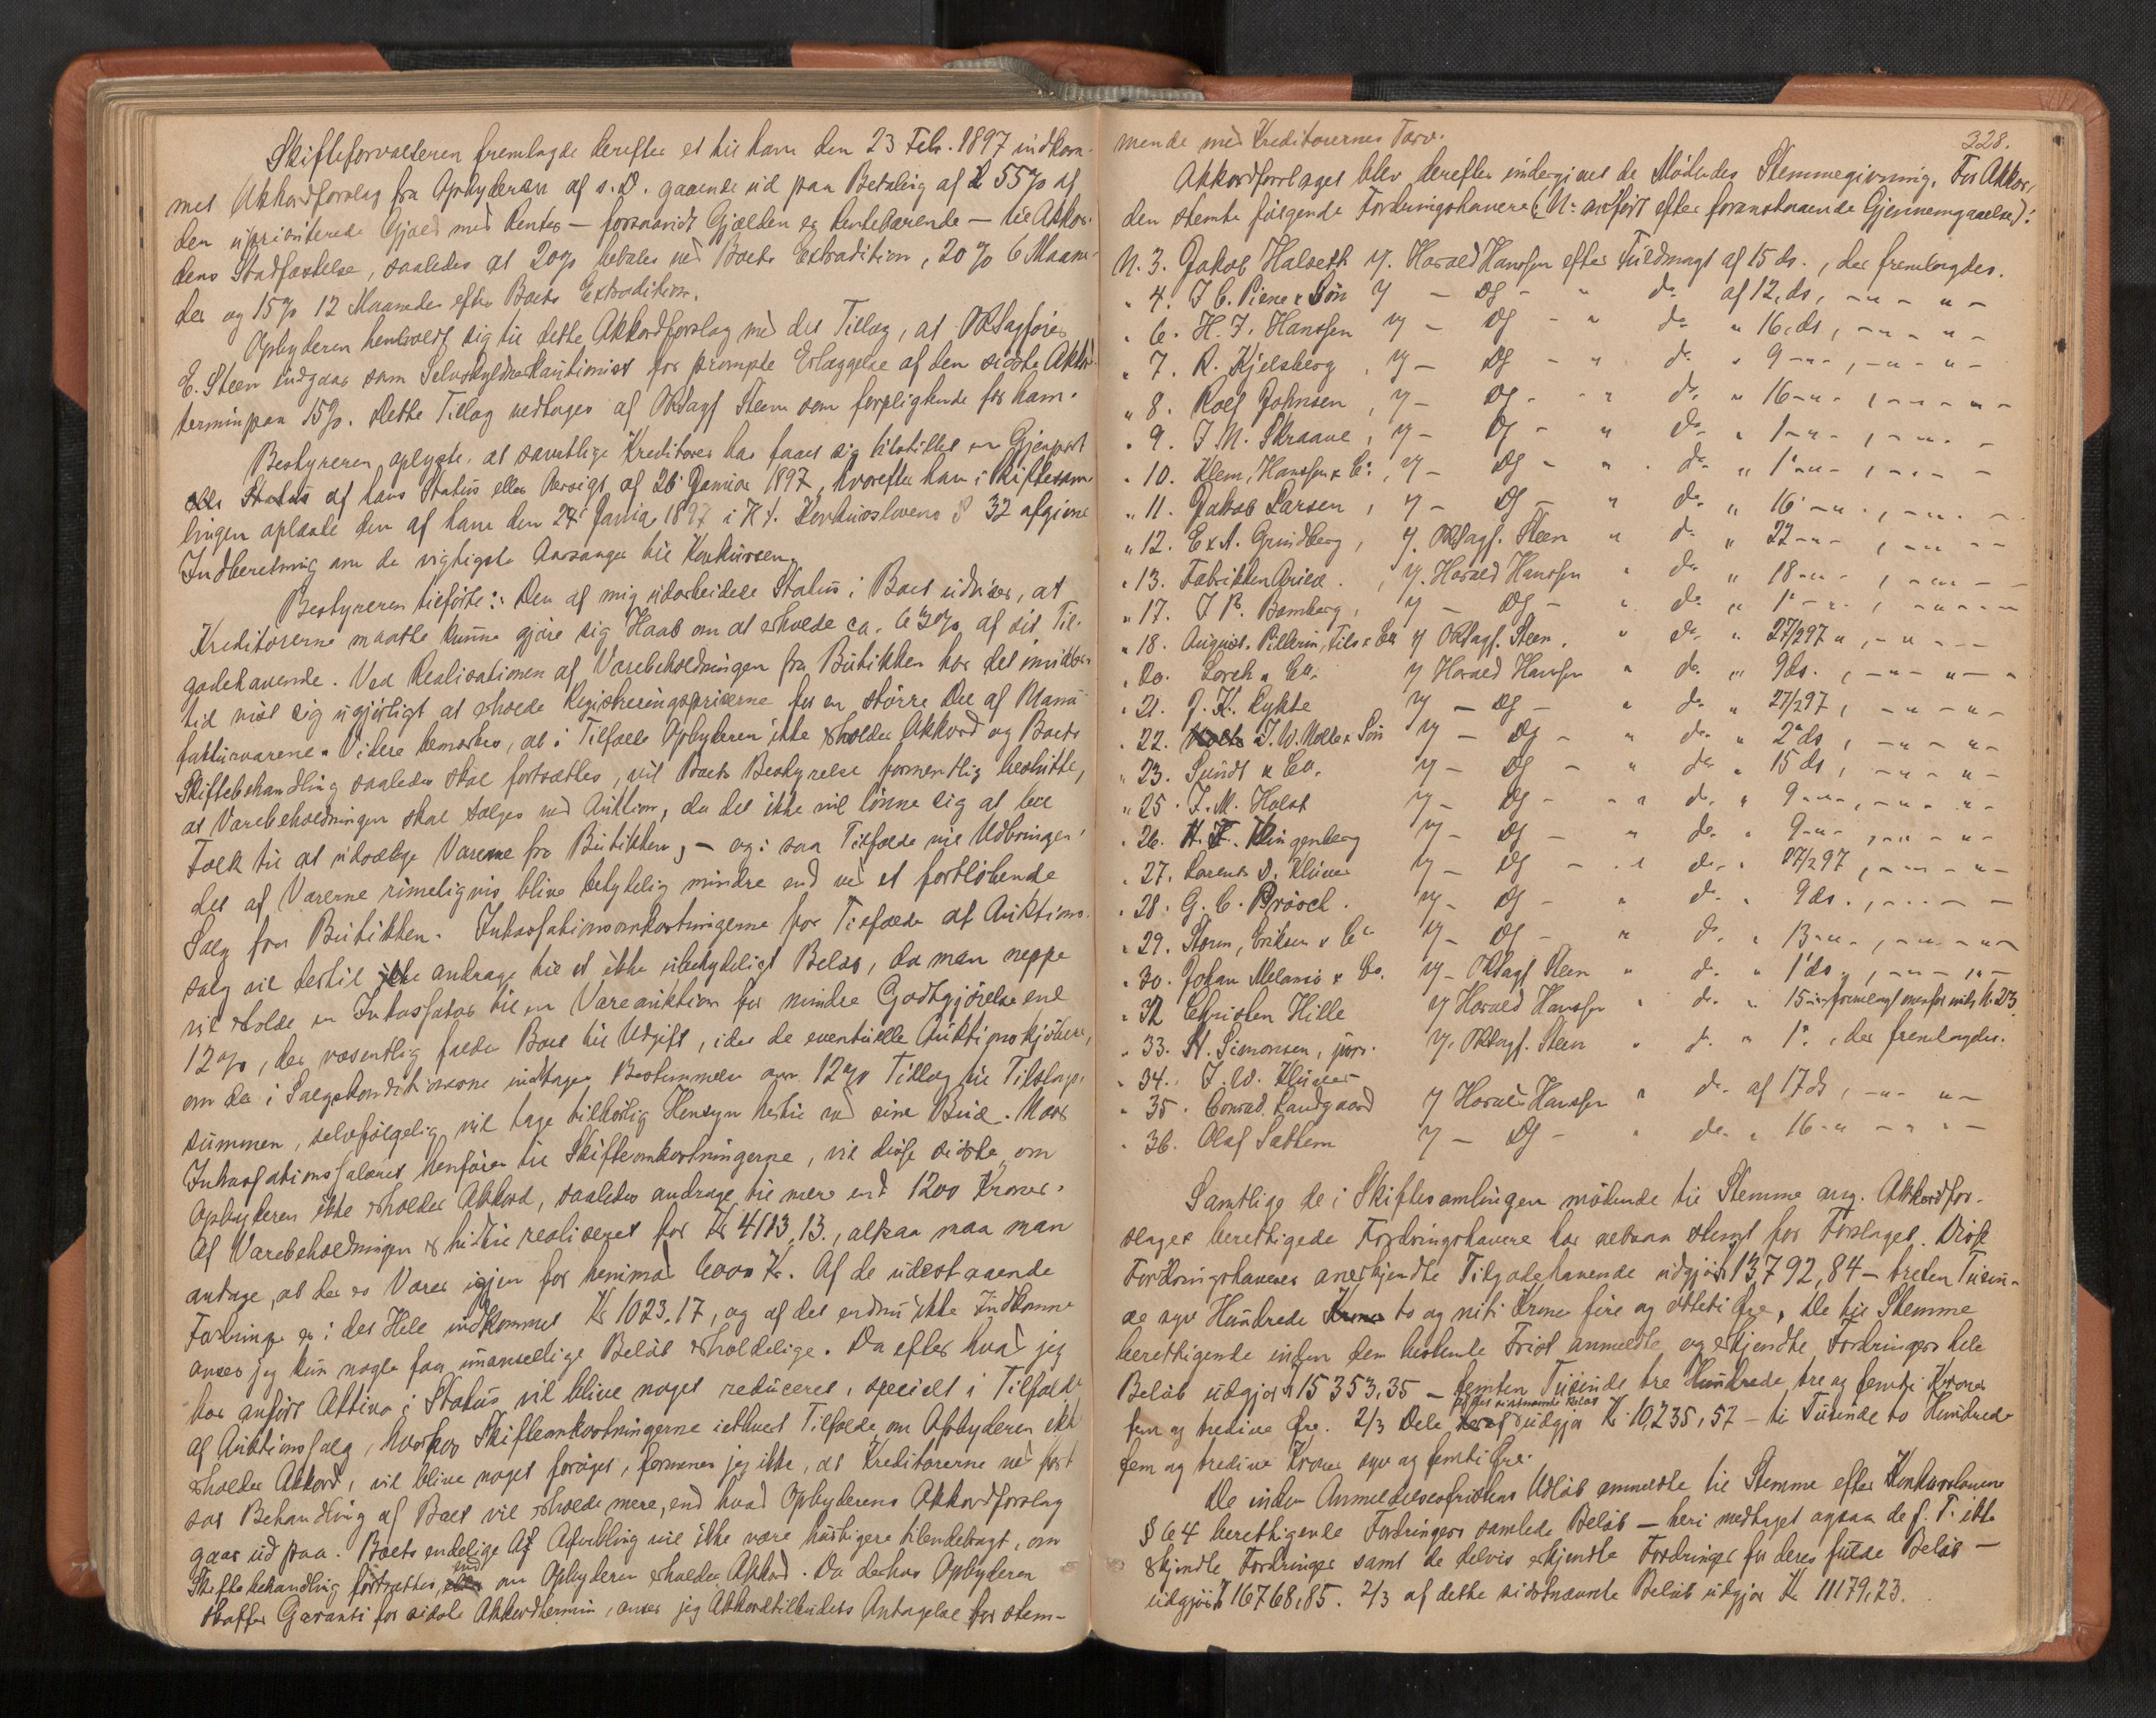 Skifteforvalteren fremlagde derefter et til ham den 23 Febr. 1897 indkom-
met Akkordforslag fra Opbyderen af s. D. gaaende ud paa Betaling af 55% af
den uprioriterede Gjæld med Renter – forsaavidt Gjælden er rentebærende – til Akkor-
dens Stadfæstelse, saaledes at 20% betales ved Boets Extradition, 20% 6 Maane-
der og 15% 12 Maaneder efter Boets Extradition.
Opbyderen henholdt sig til dette Akkordforslag med det Tillæg, at ORsagfører
E. Steen indgaar som Selvskyldnerkautionist for prompte Erlæggelse af den sidste Akkord-
termin paa 15%. Dette Tillæg vedtages af ORsagf Steen som forpligtende for ham.
Bestyreren oplyste, at samtlige Kreditorer har faaet sig tilstillet en Gjenpart
af hans Status eller Oversigt af 26 Januar 1897, hvorefter han i Skiftesam-
lingen oplæste den af ham den 27 Januar 1897 i H. t. Konkurslovens § 32 afgivne
Indberetning om de vigtigste Aarsager til Konkursen.
Bestyreren tilførte: Den af mig udarbeidede Status i Boet udviser, at
Kreditorerne maatte kunne gjøre sig Haab om at erholde ca. 63% af sit Til-
godehavende. Ved Realisationen af Varebeholdningen fra Butikken har det imidler-
tid vist sig ugjørligt at erholde Registreringspriserne for en større Del af Manu-
fakturvarerne. Videre bemærkes, at i Tilfælde Opbyderen ikke erholder Akkord og Boets
Skiftebehandling saaledes skal fortsættes, vil Boets Bestyrelse formentlig beslutte,
at Varebeholdningen skal sælges ved Auktion, da det ikke vil lønne sig at leie
Folk til at udsælge Varerne fra Butikken, – og i saa Tilfælde vil Udbringen-
det af Varerne rimeligvis blive betydelig mindre end ved et fortløbende
Salg fra Butikken. Inkassationsomkostningerne for Tilfælde af Auktions-
salg vil dertil andrage til et ikke ubetydeligt Beløb, da man neppe
vil erholde en Inkassator til en Vareauktion for mindre Godtgjørelse end
12%, der væsentlig falder Boet til Udgift, idet de eventuelle Auktionskjøbere,
om der i Salgskonditionerne indtages Bestemmelse om 12% Tillæg til Tilslags-
summen, selvfølgelig vil tage tilbørlig Hensyn hertil ved sine Bud. Naar
Inkassationssalæret henføres til Skifteomkostningerne, vil disse sidste, om
Opbyderen ikke erholder Akkord, saaledes andrage til mere end 1200 Kroner.
Af Varebeholdningen er hidtil realiseret for Kr 4113,13., altsaa maa man
antage, at der er Varer igjen for henimod 6000 Kr. Af de udestaaende
Fordringer er i det Hele indkommet Kr 1023,17, og af det endnu ikke Indkomne
anser jeg kun nogle faa uanselige Beløb erholdelige. Da efter hvad jeg
har anført Aktiva i Status vil blive noget reduceret, specielt i Tilfælde
af Auktionssalg, hvorhos Skifteomkostningerne i ethvert Tilfælde, om Opbyderen ikke
erholder Akkord, vil blive noget forøget, formener jeg ikke, at Kreditorerne ved fort-
sat Behandling af Boet vil erholde mere, end hvad Opbyderens Akkordforslag
gaar ud paa. Boets endelige Afvikling vil ikke være hurtigere tilendebragt, om
Skiftebehandling fortsættes, end om Opbyderen erholder Akkord. Da derhos Opbyderen
skaffer Garanti for sidste Akkordtermin, anser jeg Akkordtilbudets Antagelse for stem-
328.
mende med Kreditorernes Tarv.
Akkordforslaget blev derefter undergivet de Mødendes Stemmegivning. For Akkor-
den stemte følgende Fordringshavere (: No anført efter foranstaaende Gjennemgaaelse):
N. 3. Jakob Halseth v. Harald Hanssen efter Fuldmagt af 15 ds., der fremlagdes.
" 4. I C. Piene & Søn v – Do – " do af 12, ds, – " – " –
" 6. H. F. Hanssen v – Do – " do " 16, ds, – " – " –
" 7. R. Kjelsberg, v – Do – " do " 9 – " –, – " – " –
" 8. Roef Johnsen, v – Do – " do " 16 – " –, – " – " –
" 9. I M. Skraave, v – Do – " do " 1 – " –, – " – –
" 10. Klem, Hanssen & Co, v – Do – " do " 1 – " –, – " – –
" 11. Jakob Larsen, v – Do – " do " 16 – " –, – " – –
" 12. E & A. Grindberg, v. ORsagf. Steen " do " 22 – " –, – " – –
" 13. Fabrikken Arild, v. Harald Hanssen " do " 18 – " –, – " – –
" 17. I R. Bamberg, v – Do – " do " 1 – " –, – " – –
" 18. August Pellerin, fils & Co v ORsagf. Steen, " do " 27/297 ", – " – –
" 20. Lorck & Co. v Harald Hanssen " do " 9 ds., – " – " –
" 21. J. K. Lykke v – Do – " do " 27/297, – " – " –
" 22. I. W. Molle & Søn v – Do – " do " 2 ds, – " – " –
" 23. Sundt & Co. v – Do – " do " 15 ds, – " – " –
" 25. I. M. Holst v – Do – " do " 9 – " –, – " – " –
" 26. Klingenberg v – Do – " do " 9 – " –, – " – " –
" 27. Lorents D. Klüver v – Do – " do " 27/297, – " – " –
" 28. G. C. Brøsch. v – Do – " do " 9 ds., – " – –
" 29. Storm, Eriksen & Co v – Do – " do " 13 – " –, – " – " –
" 30. Johan Melansö & Co. v – ORsagf Steen " do " 1 ds., – " – " –
" 32 Christen Hille v Harald Hanssen " do " 15 – " – fremlagt ovenfor under N. 23.
" 33. St. Simonsen, jun. v. ORsagf. Steen " do " 1', der fremlagdes.
" 34. I. W. Klüver
" 35. Conrad Landgaard v Harald Hanssen " do af 17 ds, – " – " –
" 36. Olaf Sathem v – Do – " do " 16 – " – " – " –
Samtlige de i Skiftesamlingen mødende til Stemme ang. Akkordfor-
slaget berettigede Fordringshavere har altsaa stemt for Forslaget. Disse
Fordringshaveres anerkjendte Tilgodehavende udgjør Kr 13,792,84 – tretten Tusin-
de syv Hundrede to og nitti Kroner fire og ottetti Øre. De til Stemme
berettigende inden den bestemte Frist anmeldte og erkjendte Fordringers hele
Beløb udgjør Kr 15353,35 – femten Tusinde tre Hundrede tre og femti Kroner
fem og tredive Øre. 2/3 Dele af det sidstnævnte Beløb udgjør Kr. 10,235,57 – ti Tusinde to Hundrede
fem og tredive Kroner syv og femti Øre.
De inden Anmeldelsesfristens Udløb anmeldte til Stemme efter Konkurslovens
§ 64 berettigende Fordringers samlede Beløb – heri medtaget ogsaa de f. T. ikke
erkjendte Fordringer samt de delvis erkjendte Fordringer for deres fulde Beløb –
udgjør Kr 16768,85. 2/3 af dette sidstnævnte Beløb udgjør Kr 11179,23.